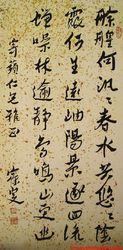 艅艎何汎汎春水共悠悠陰
霞生遠岫陽景逐迴流
蟬噪林逾静鳥鳴山更幽
仁兄雅正